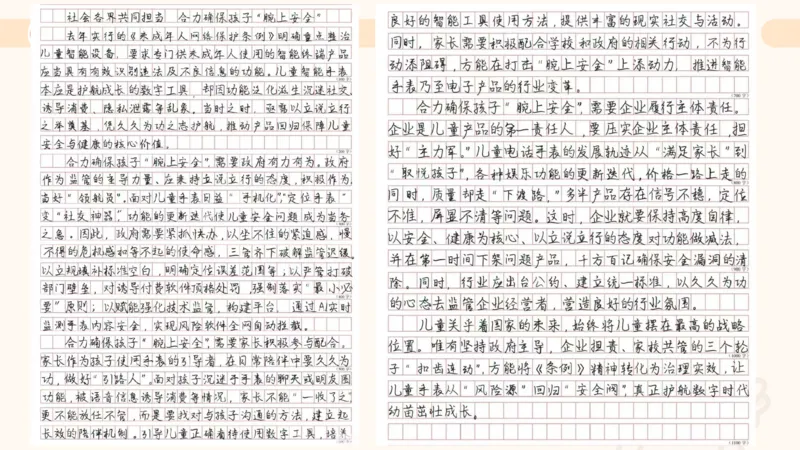 社会各界共同担当 合力确保孩子"腕上安全"
去年实行的《未成年人网络保护条例》明确重点整治
儿童智能设备，要求专门供未成年人使用的智能终端产品
应当具有有效识别违法及不良信息的功能。儿童智能手表
本应是护航成长的数字工具，却因功能泛化滋生沉迷社交、
诱导消费、隐私泄露等乱象。当时之时，亟需以立说立行
之举奠基，凭久久为功之志护航，推动产品回归保障儿童
安全与健康的核心价值。
合力确保孩子"腕上安全"，需要政府有力有为。政府
作为监管的主导力量、应秉持立说立行的态度，积极作为，
当好"领航员"。面对儿童手表日益"手机化"，"定位手表"
变"社交神器"，功能的更新迭代使儿童安全问题成为当务
之急。因此，政府需要紧抓快办，以坐不住的紧迫感，慢
不得的危机感和等不起的使命感，三管齐下破解监管迟缓。
以立规填补标准空白，明确定位误差范围等；以严管打破
部门壁垒，对诱导付费软件顶格处罚，强制落实"最小必
要"原则；以赋能强化技术监管，构建平台，通过AI实时
监测手表内容安全，实现风险软件全网自动拦截。
合力确保孩子"腕上安全"，需要家长积极参与配合。
家长作为孩子使用手表的引导者，在日常陪伴中要久久为
功，做好"引路人"。面对孩子沉迷于手表的聊天或朋友圈
功能，被语音信息诱导消费等情况，家长不能"一收了之"
更不能放任不管，而是要找对与孩子沟通的方法，建立起
长效的陪伴机制。引导儿童正确看待使用数字工具，培养
良好的智能工具使用方法，提供丰富的现实社交与活动。
同时，家长需要积极配合学校和政府的相关行动，不为行
动添阻碍，方能在打击"腕上安全"上添动力，推进智能
手表乃至电子产品的行业变革。
合力确保孩子"腕上安全"，需要企业履行主体责任。
企业是儿童产品的第一责任人，要压实企业主体责任，担
好"主力军"。儿童电话手表的发展轨迹从"满足家长"到
"取悦孩子"，各种娱乐功能的更新迭代，价格一路上走的
同时，质量却走"下坡路"，多半产品存在信号不稳，定位
不准，屏幕不清等问题。这时，企业就要保持高度自律，
以安全、健康为核心、以立说立行的态度对功能做减法，
并在第一时间下架问题产品，千方百计确保安全漏洞的清
除。同时，行业应出台公约、建立统一标准，以久久为功
的心态去监管企业经营者，营造良好的行业氛围。
儿童关乎着国家的未来，始终将儿童摆在最高的战略
位置。唯有坚持政府主导，企业担责、家校共管的三个轮
子"扣齿连动"，方能将《条例》精神转化为治理实效，让
儿童手表从"风险源"回归"安全阀"，真正护航数字时代
幼苗茁壮成长。